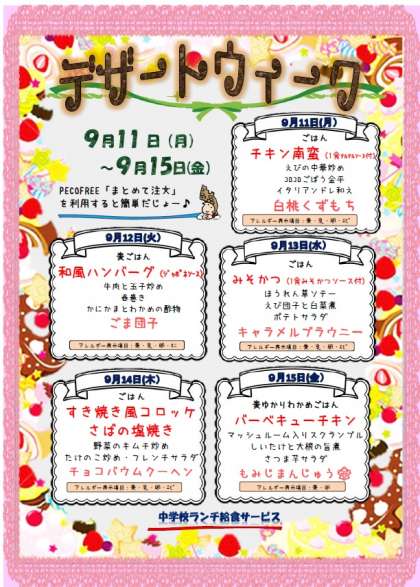 デザートウィーク
9月11日(月)
～9月15日(金)
PECOFREE「まとめて注文」
を利用すると簡単だじょー♪
9月11日(月)
ごはん
チキン南蛮（1食タルタルソース付）
えびの中華炒め
コロコロごぼう金平
イタリアンドレ和え
白桃くずもち
アレルギー表示項目：麦・乳・卵・エビ
9月12日(火)
麦ごはん
和風ハンバーグ（ジャポネソース）
牛肉と玉子炒め
春巻き
かにかまとわかめの酢物
ごま団子
アレルギー表示項目：麦・乳・卵・カニ
9月13日(水)
ごはん
みそかつ（1食みそかつソース付）
ほうれん草ソテー
えび団子と白菜煮
ポテトサラダ
キャラメルブラウニー
アレルギー表示項目：麦・乳・卵・エビ
9月14日(木)
ごはん
すき焼き風コロッケ
さばの塩焼き
野菜のキムチ炒め
たけのこ炒め・フレンチサラダ
チョコバウムクーヘン
アレルギー表示項目：麦・乳・卵・エビ
9月15日(金)
麦ゆかりわかめごはん
バーベキューチキン
マッシュルーム入りスクランブル
しいたけと大根の旨煮
さつま芋サラダ
もみじまんじゅう
アレルギー表示項目：麦・卵
中学校ランチ給食サービス